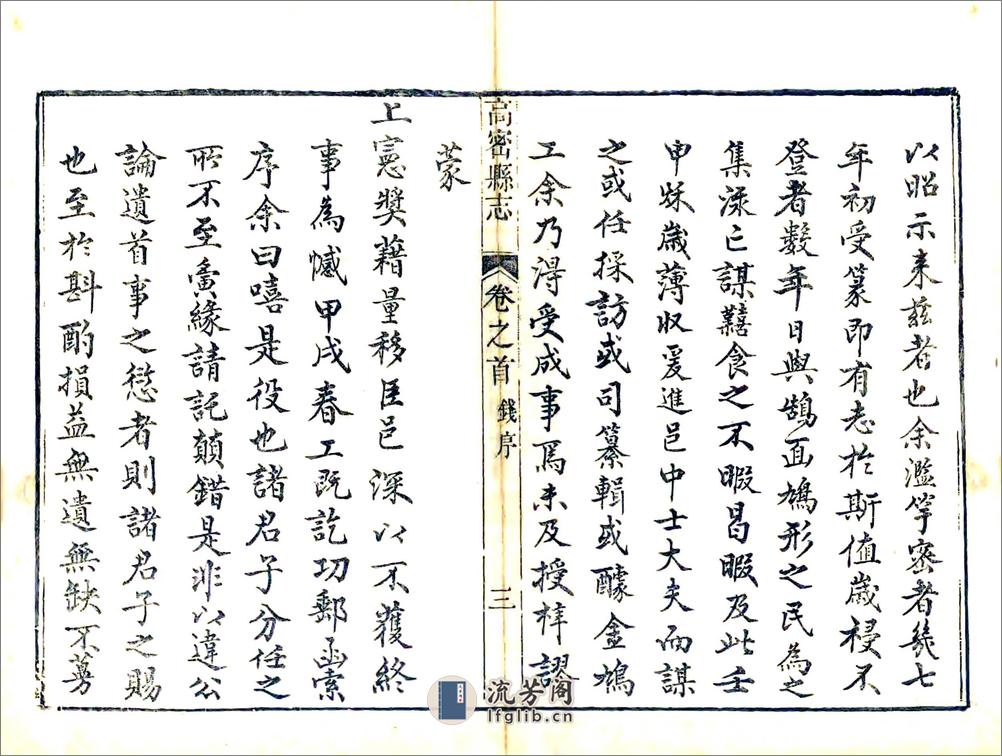 以昭示来茲者也余濫竽密者幾七
年初受篆即有志於斯值歲祲不
登者數年日與鵠面鳩形之民為之
集澤亡謀饘食之不暇曷暇及此壬
申秋歲薄收爰進邑中士大夫而謀
之或任採訪或司纂輯或醵金鳩
工余乃得受成事焉未及授梓謬
蒙
上憲獎藉量移臣邑深以不獲終
事為憾甲戌春工既訖功郵函索
序余曰嘻是役也諸君子分任之
所不至夤緣請託顛錯是非以違公
論遺首事之愆者則諸君子之賜
也至於斟酌損益無遺無缺不蔓
高密縣志
卷之首
錢序
三
流芳阁
lfglib.cn